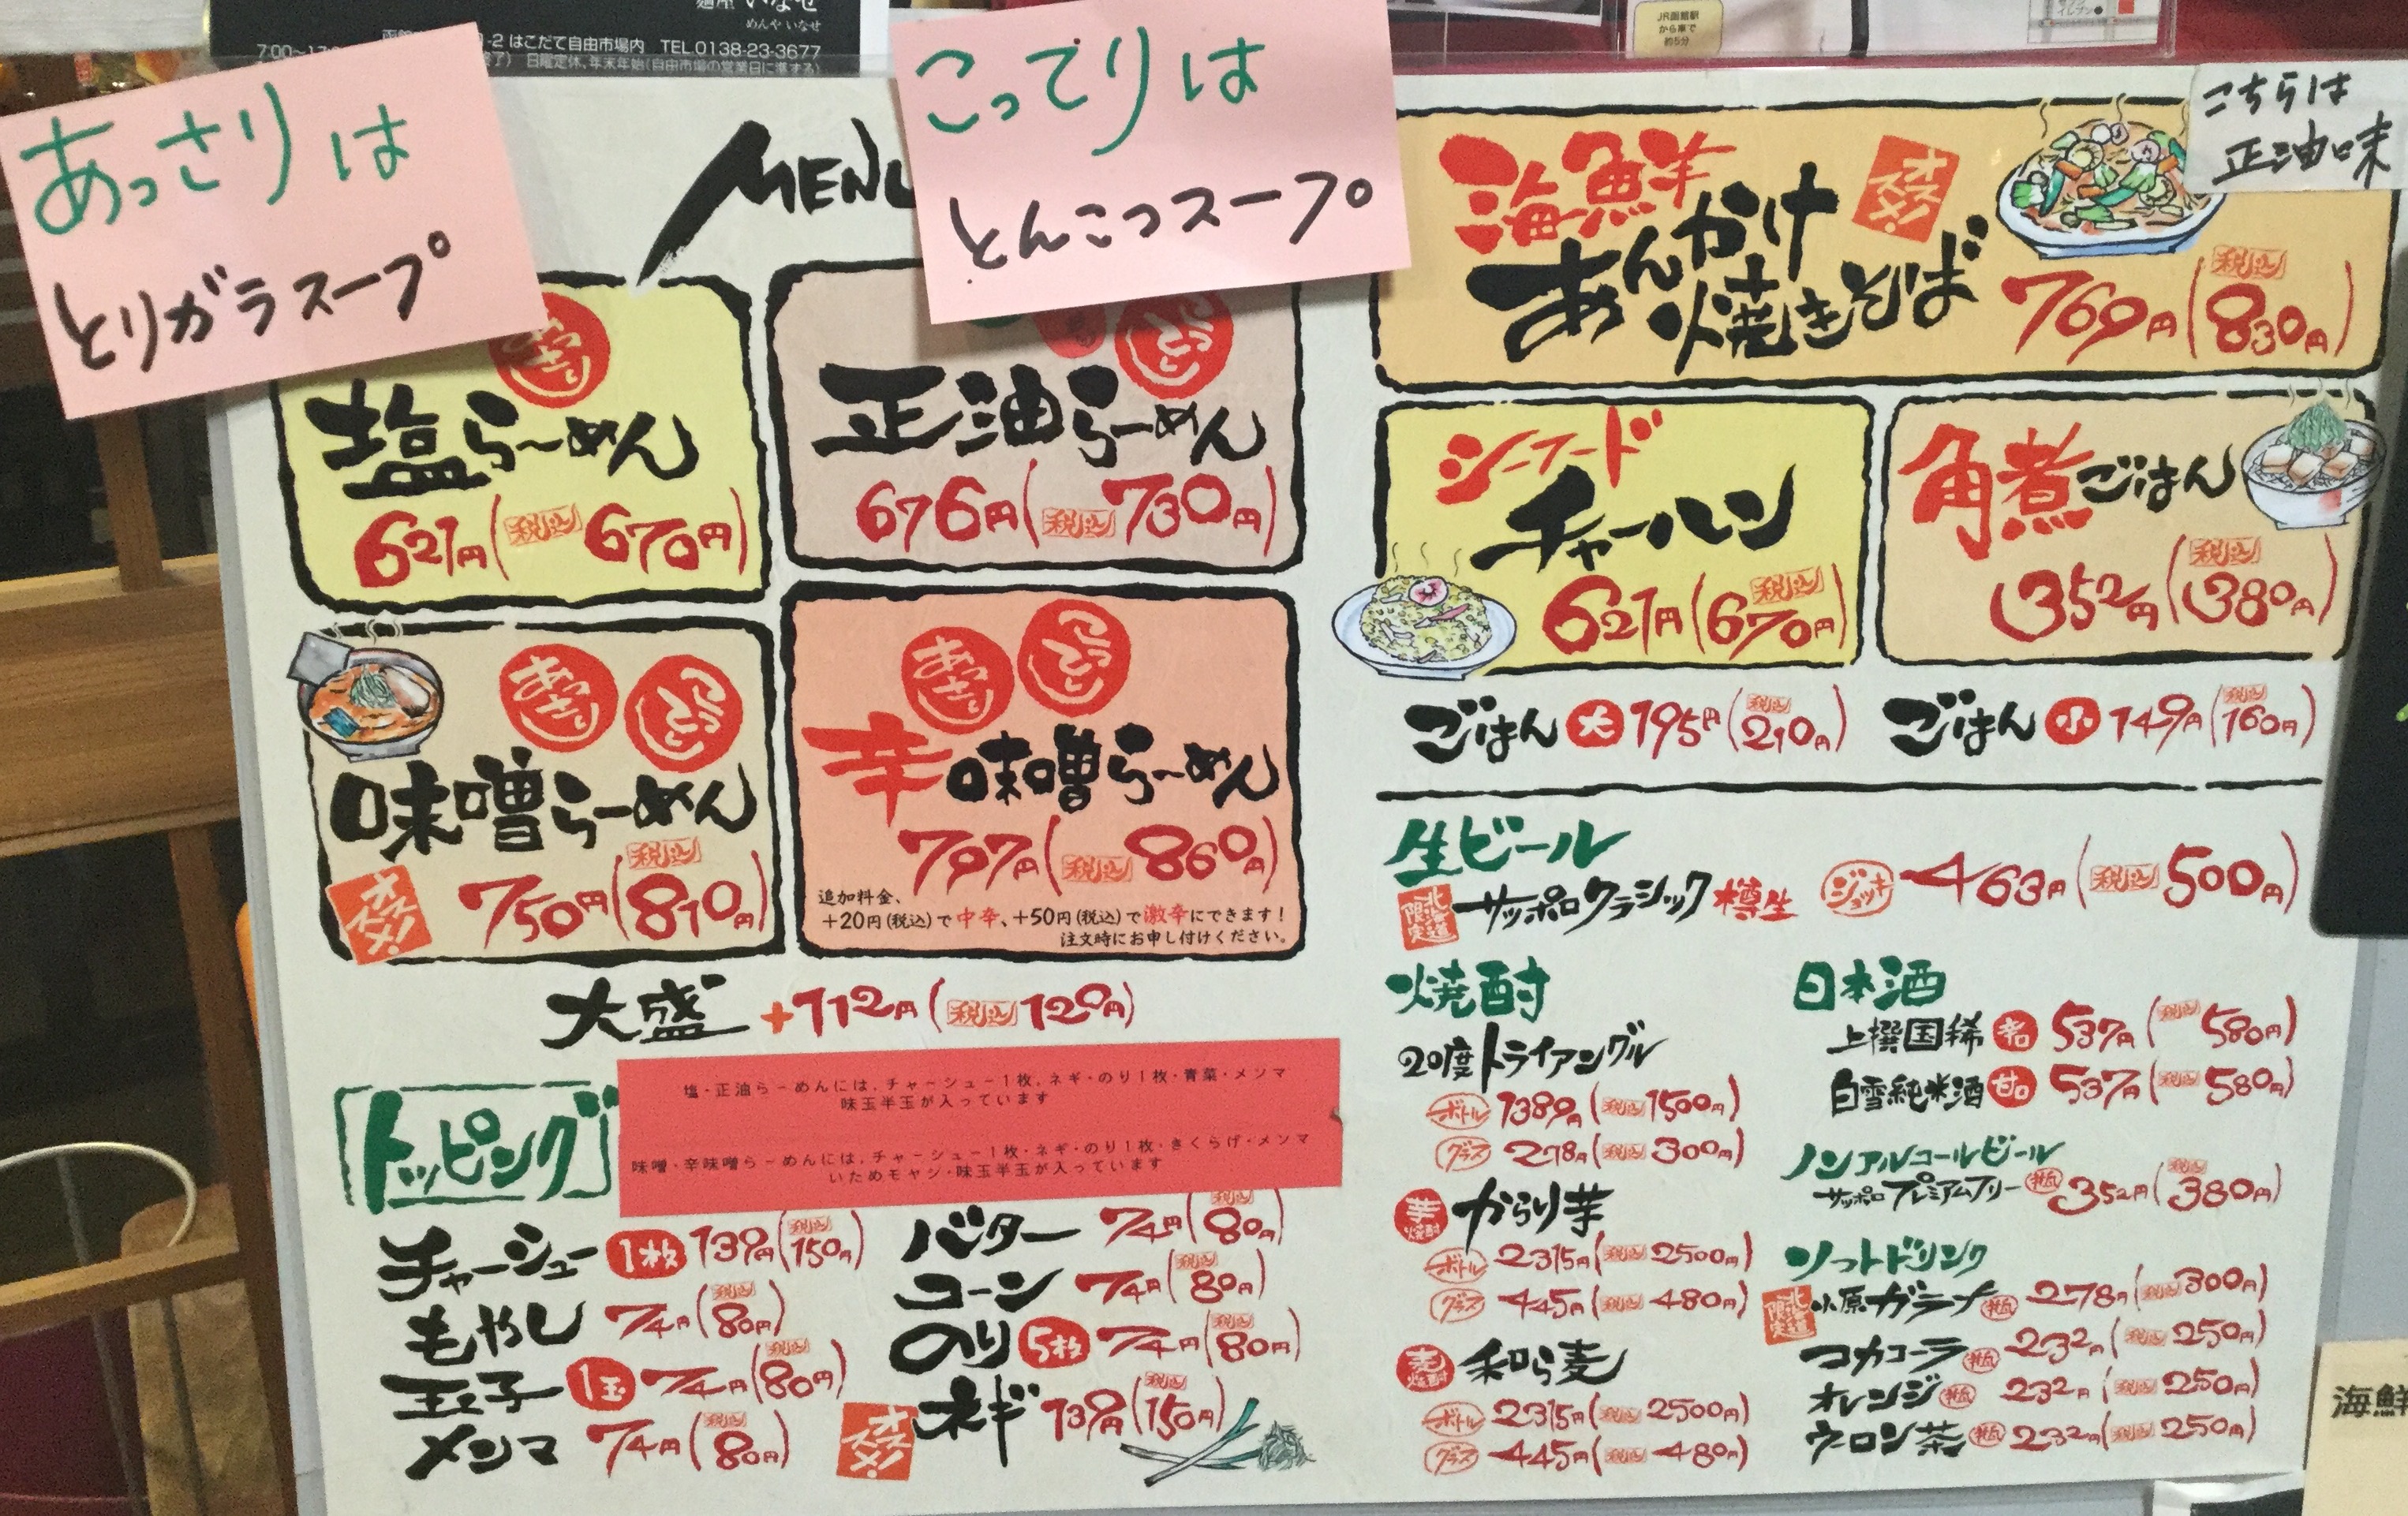 麺屋 いなせ
めんや いなせ
-2 はこだて自由市場内 TEL.0138-23-3677
7:00〜
日曜定休、年末年始(自由市場の営業日に準ずる)
JR函館駅
から車で
約5分
あっさりは
とりガラスープ
こってりは
とんこつスープ
MENU
塩らーめん
621円(税込670円)
こってり
正油らーめん
676円(税込730円)
あっさり こってり
味噌らーめん
オススメ!
750円(税込810円)
あっさり こってり
辛味噌らーめん
797円(税込860円)
追加料金、
+20円(税込)で中辛、+50円(税込)で激辛にできます!
注文時にお申し付けください。
大盛 +112円(税込120円)
トッピング
塩・正油らーめんには、チャーシュー1枚、ネギ・のり1枚・青菜・メンマ
味玉半玉が入っています
味噌・辛味噌らーめんには、チャーシュー1枚・ネギ・のり1枚・きくらげ・メンマ
いためモヤシ・味玉半玉が入っています
チャーシュー 1枚 139円(税込150円)
もやし 74円(税込80円)
玉子 1玉 74円(税込80円)
メンマ 74円(税込80円)
バター 74円(税込80円)
コーン 74円(税込80円)
のり 5枚 74円(税込80円)
オススメ! ネギ 139円(税込150円)
こちらは
正油味
海鮮
あんかけ
焼きそば
オススメ!
769円(税込830円)
シーフード
チャーハン
621円(税込670円)
角煮ごはん
352円(税込380円)
ごはん 大 195円(税込210円)
ごはん 小 149円(税込160円)
生ビール
北海道限定 サッポロクラシック樽生 ジョッキ 463円(税込500円)
焼酎
20度トライアングル
ボトル 1389円(税込1500円)
グラス 278円(税込300円)
芋焼酎 からり芋
ボトル 2315円(税込2500円)
グラス 445円(税込480円)
麦焼酎 和ら麦
ボトル 2315円(税込2500円)
グラス 445円(税込480円)
日本酒
上撰国稀 辛口 537円(税込580円)
白雪純米酒 甘口 537円(税込580円)
ノンアルコールビール
サッポロプレミアムフリー 瓶 352円(税込380円)
ソフトドリンク
北海道限定 小原ガラナ 瓶 278円(税込300円)
コカコーラ 瓶 232円(税込250円)
オレンジ 瓶 232円(税込250円)
ウーロン茶 瓶 232円(税込250円)
海鮮